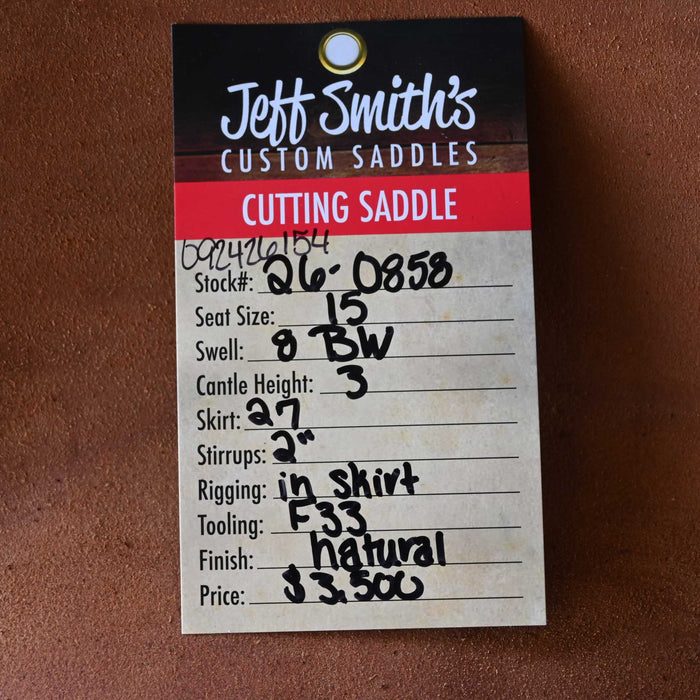 Jeff Smith's
CUSTOM SADDLES
CUTTING SADDLE
092426154
Stock#: 26-0858
Seat Size: 15
Swell: 8 BW
Cantle Height: 3
Skirt: 27
Stirrups: 2"
Rigging: in skirt
Tooling: F33
Finish: natural
Price: $3,500